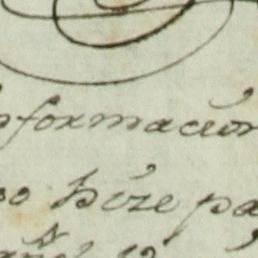 nformacion
so hize pa